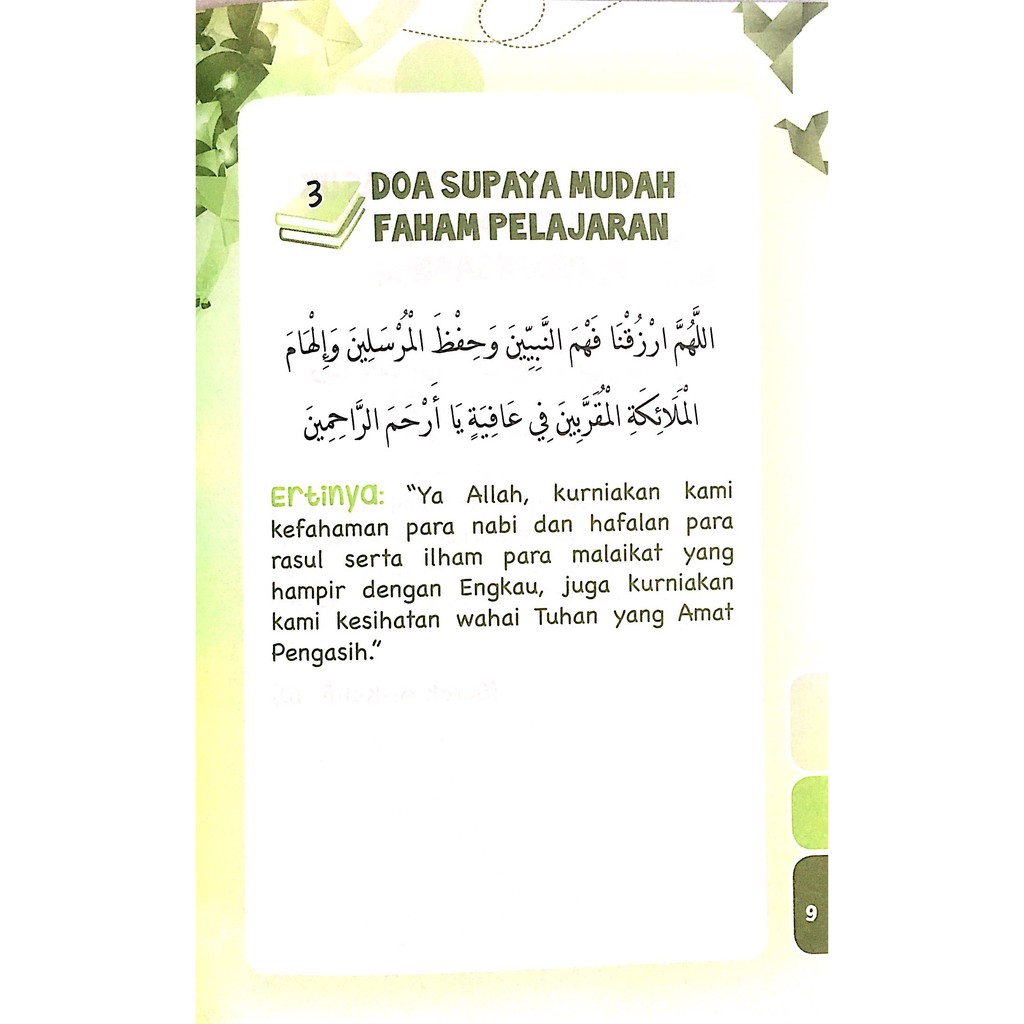 3
DOA SUPAYA MUDAH
FAHAM PELAJARAN
اللَّهُمَّ ارْزُقْنَا فَهْمَ النَّبِيِّينَ وَحِفْظَ الْمُرْسَلِينَ وَإِلْهَامَ
الْمَلَائِكَةِ الْمُقَرَّبِينَ فِي عَافِيَةٍ يَا أَرْحَمَ الرَّاحِمِينَ
Ertinya: “Ya Allah, kurniakan kami
kefahaman para nabi dan hafalan para
rasul serta ilham para malaikat yang
hampir dengan Engkau, juga kurniakan
kami kesihatan wahai Tuhan yang Amat
Pengasih.”
9